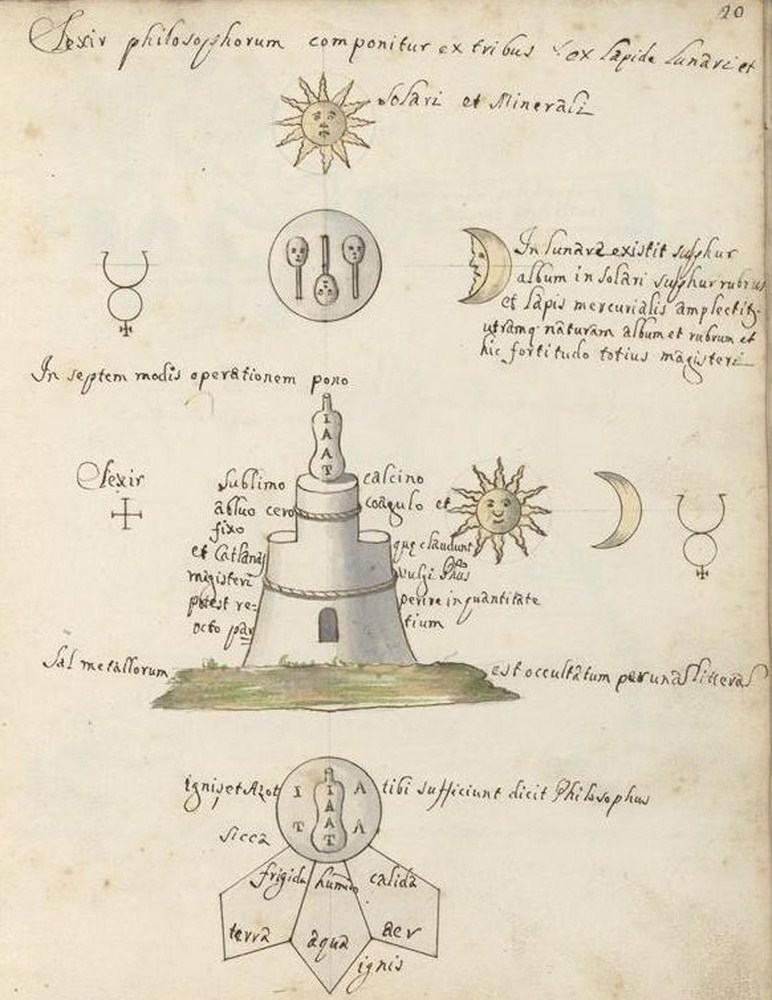 20
Lexir philosophorum componitur ex tribus ex lapide Lunari et
solari et Minerali
In lunare existit sulphur
album in solari sulphur rubeus
et lapis mercurialis amplectitq
utramq naturam album et rubrum et
hic fortitudo totius magisteri
In septem modis operationem pono
I
A
A
T
Lexir
sublimo calcino
abluo cero coagulo et
fixo
et Catland que claudunt
magisteri vulgi Phus
potest re= perire in quantitate
octo par tium
Sal metallorum est occultatum per unas litteras
ignis et Azot tibi sufficiunt dicit Philosophus
I I A
A
T A A
T
sicca
frigida humida calida
terra aqua aer
ignis